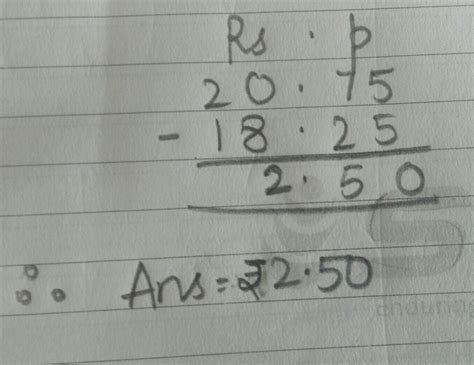 Rs . p
20.75
- 18.25
2.50
∴ Ans = ₹2.50
enduring